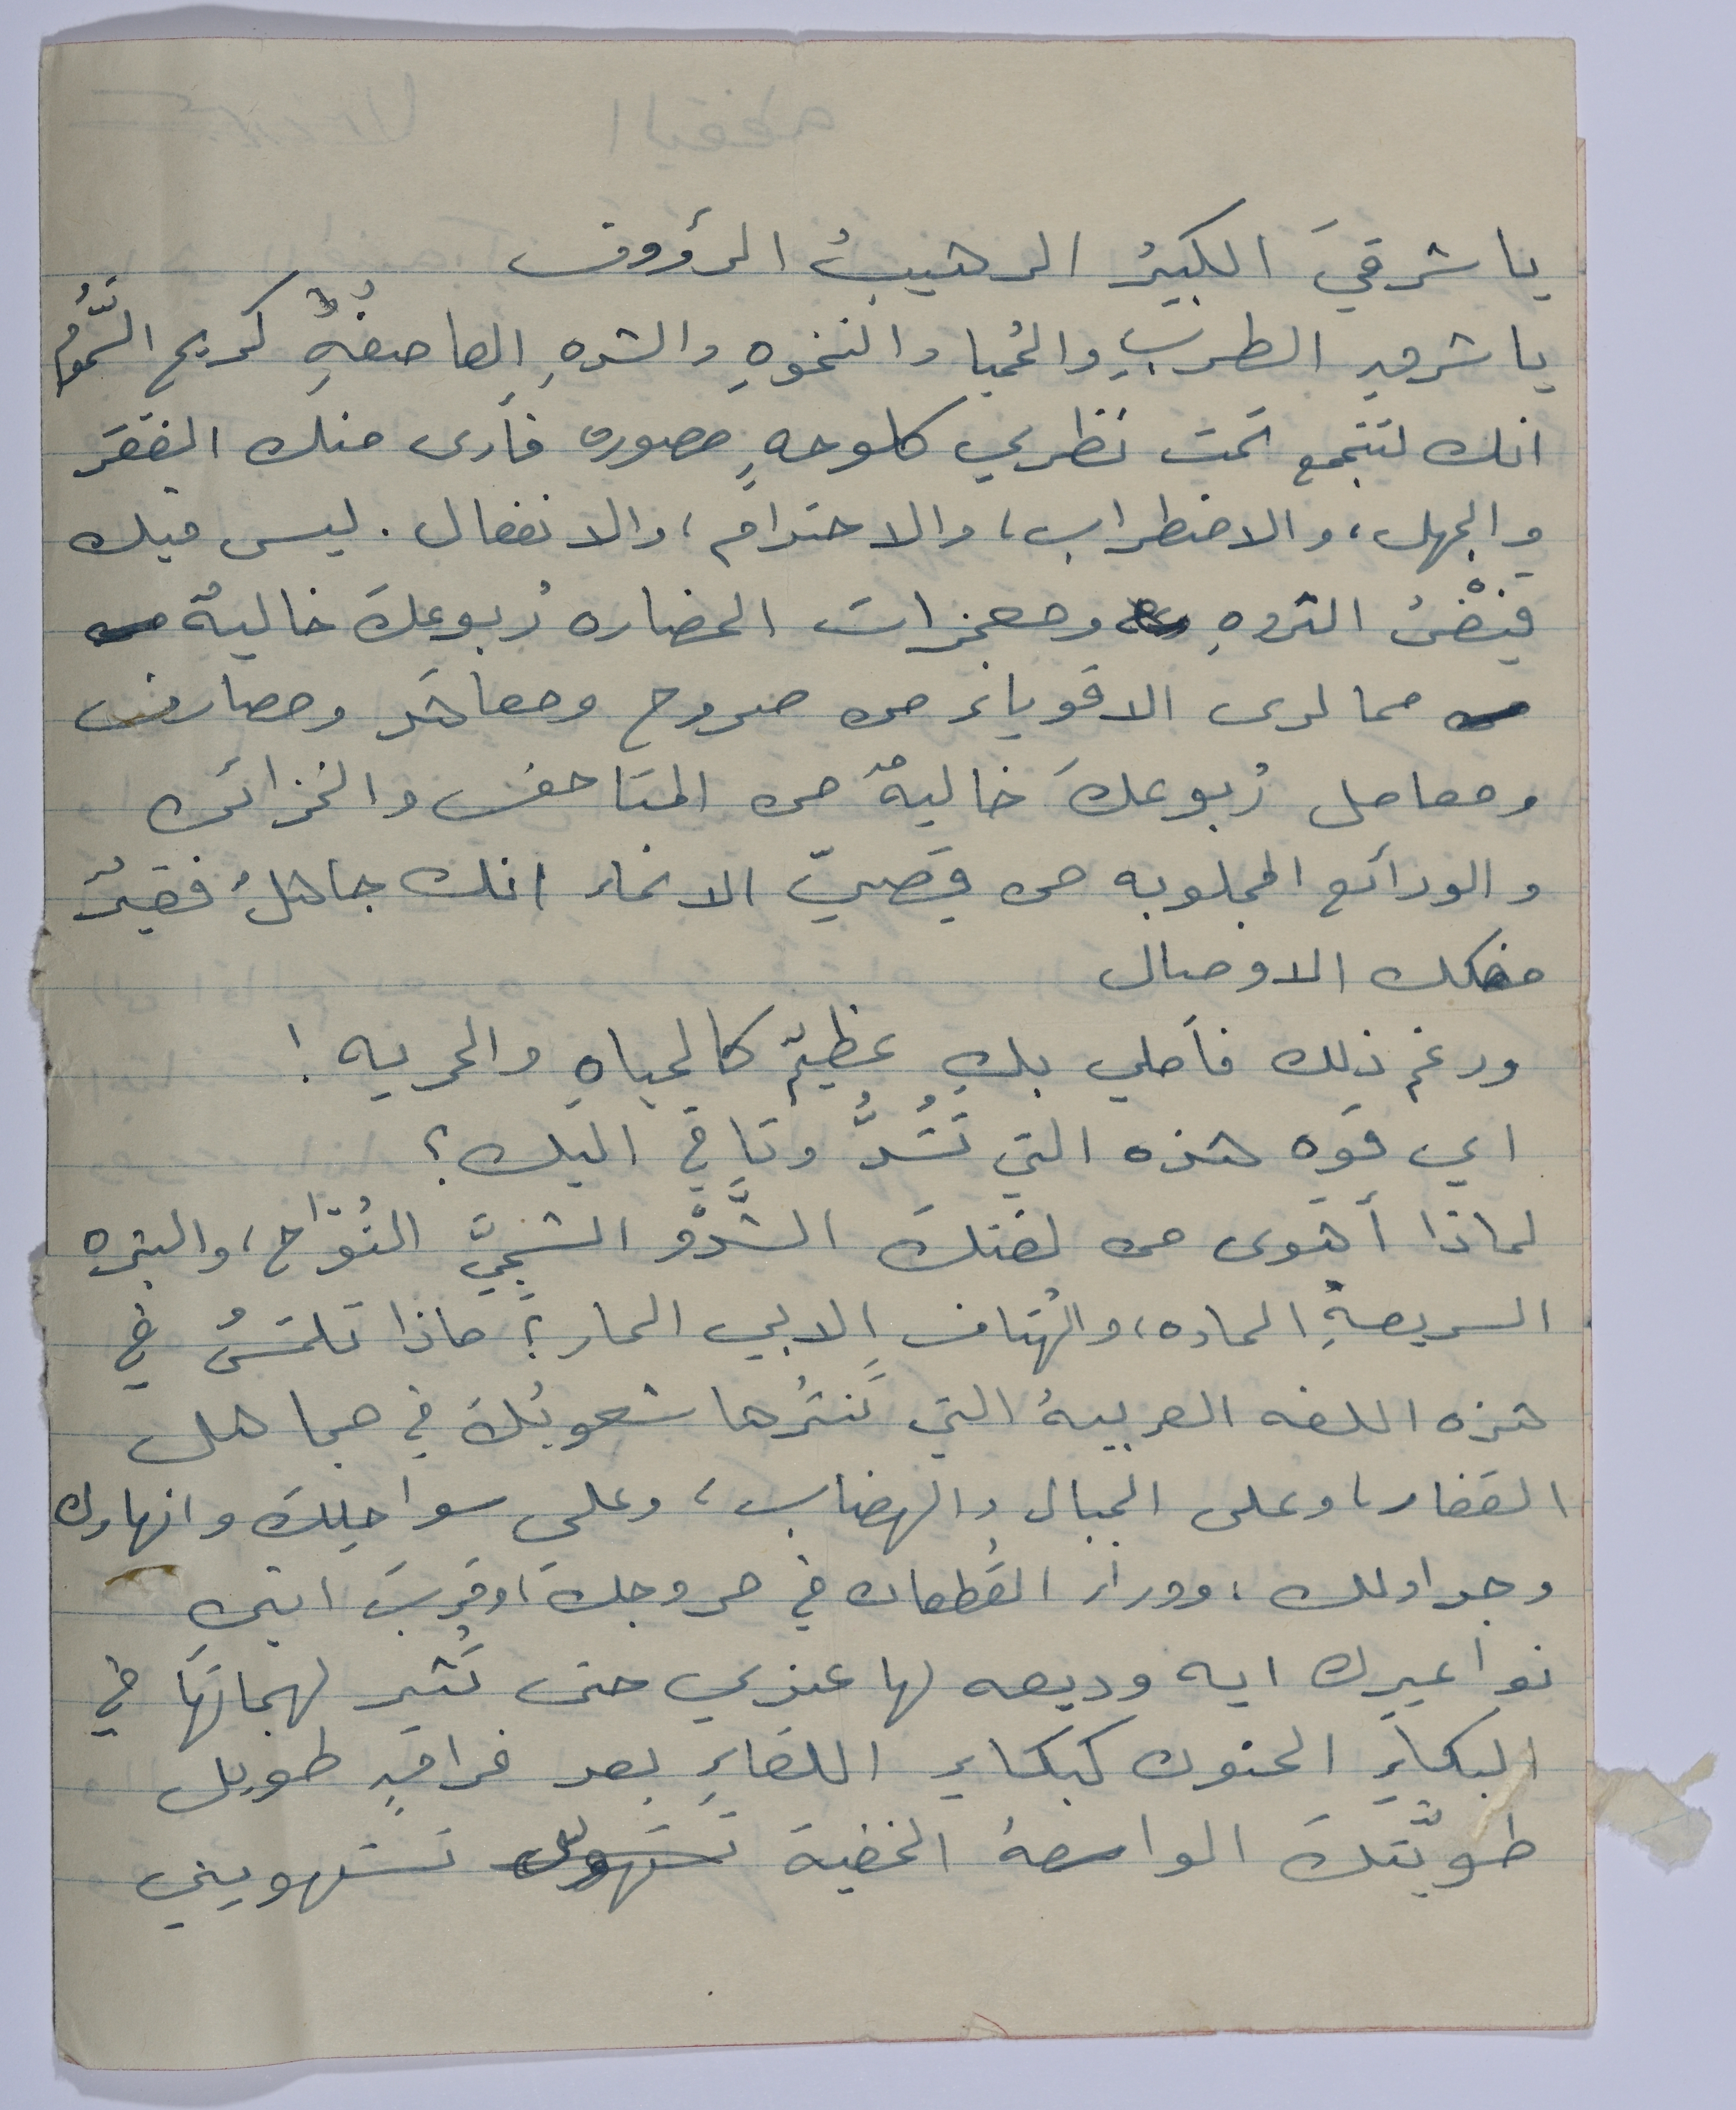 يا شرقيَ الكبيرُ الرهيبُ الرؤوف
يا شرقِ الطربِ والحُميا والنخوهِ والشرهِ العاصفهِ كريح السَّمُومِ
انك لتتجمع تحت نظري كلوحهٍ مصوره فأرى منك الفقرَ
والجهل، والاضطراب، والاحتدام، والانفعال. ليس فيك
فيْضُ الثروهِ ومعجزات الحضاره رُبوعكَ خاليهٌ
مما لدى الاقوياءِ من صروح ومعاهد ومصارف
ومعامل رُبوعكَ خاليهٌ من المتاحف والخزائن
والودائع المجلوبه من قصيّ الانحاء انك جاهلٌ فقيرٌ
مفكك الاوصال
ورغم ذلك فأملي بك عظيمٌ كالحياهِ والحريه !
اي قوه هذه التي تَشُدُّ وثاقي اليك ؟
لماذا أهوى من لغتكَ الشَّدْوَ الشجيَّ النُوّاح، والنبره
السريعهِ الحاده، والهُتاف الابي الحار؟ ماذا تلمسُ في
هذه اللغه العربيهُ التي تَنثرُها شعوبُكَ في مجاهل
القفار، وعلى الجبال والهضاب، وعلى سواحلِكَ وانهارك
وجداولك، ووراءَ القُطعان في مروجكَ، وقربَ انين
نواعيرك ايه وديعه لها عندي حتى تُثير لهجاتهَا في
البكاءِ الحنون كبكاءِ اللقاءِ بعد فراقٍ طويل
طويّتكَ الواسعهُ الخفيهَ تستهويني